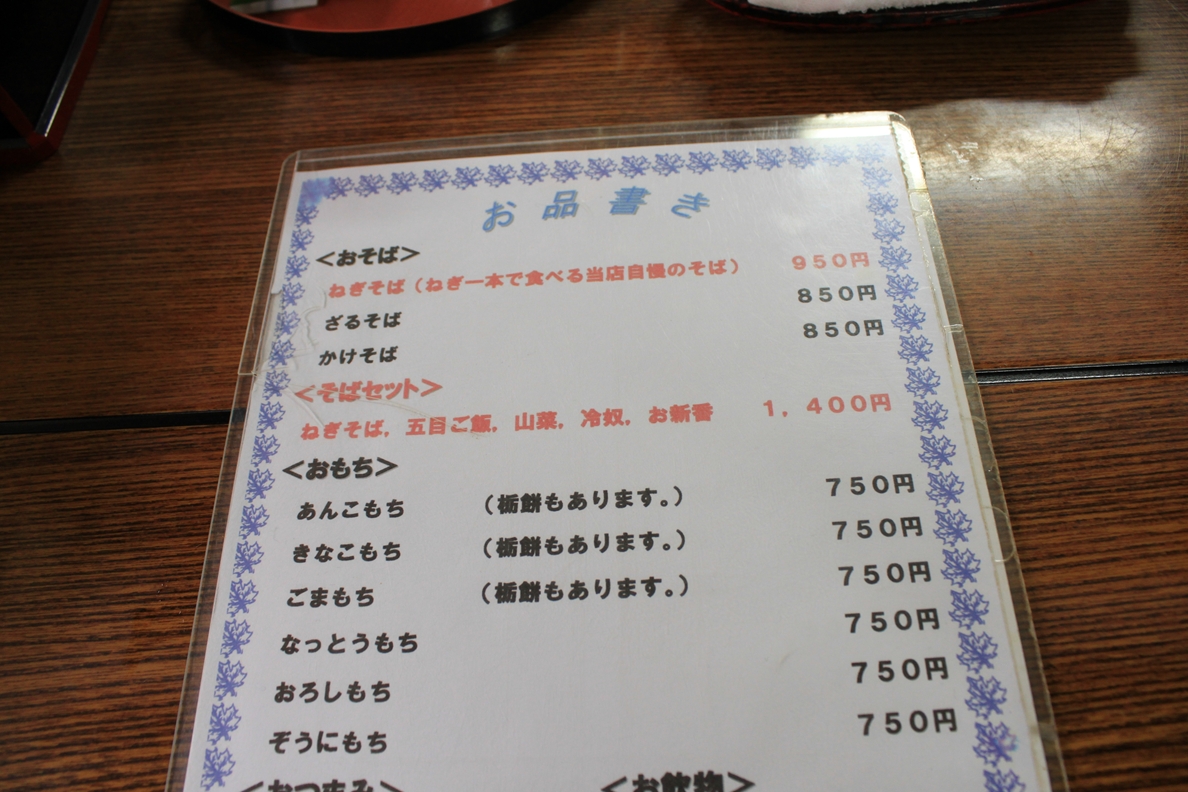 お品書き
＜おそば＞
ねぎそば（ねぎ一本で食べる当店自慢のそば） 950円
ざるそば 850円
かけそば 850円
＜そばセット＞
ねぎそば，五目ご飯，山菜，冷奴，お新香 1，400円
＜おもち＞
あんこもち （栃餅もあります。） 750円
きなこもち （栃餅もあります。） 750円
ごまもち （栃餅もあります。） 750円
なっとうもち 750円
おろしもち 750円
ぞうにもち 750円
＜おつまみ＞ ＜お飲物＞